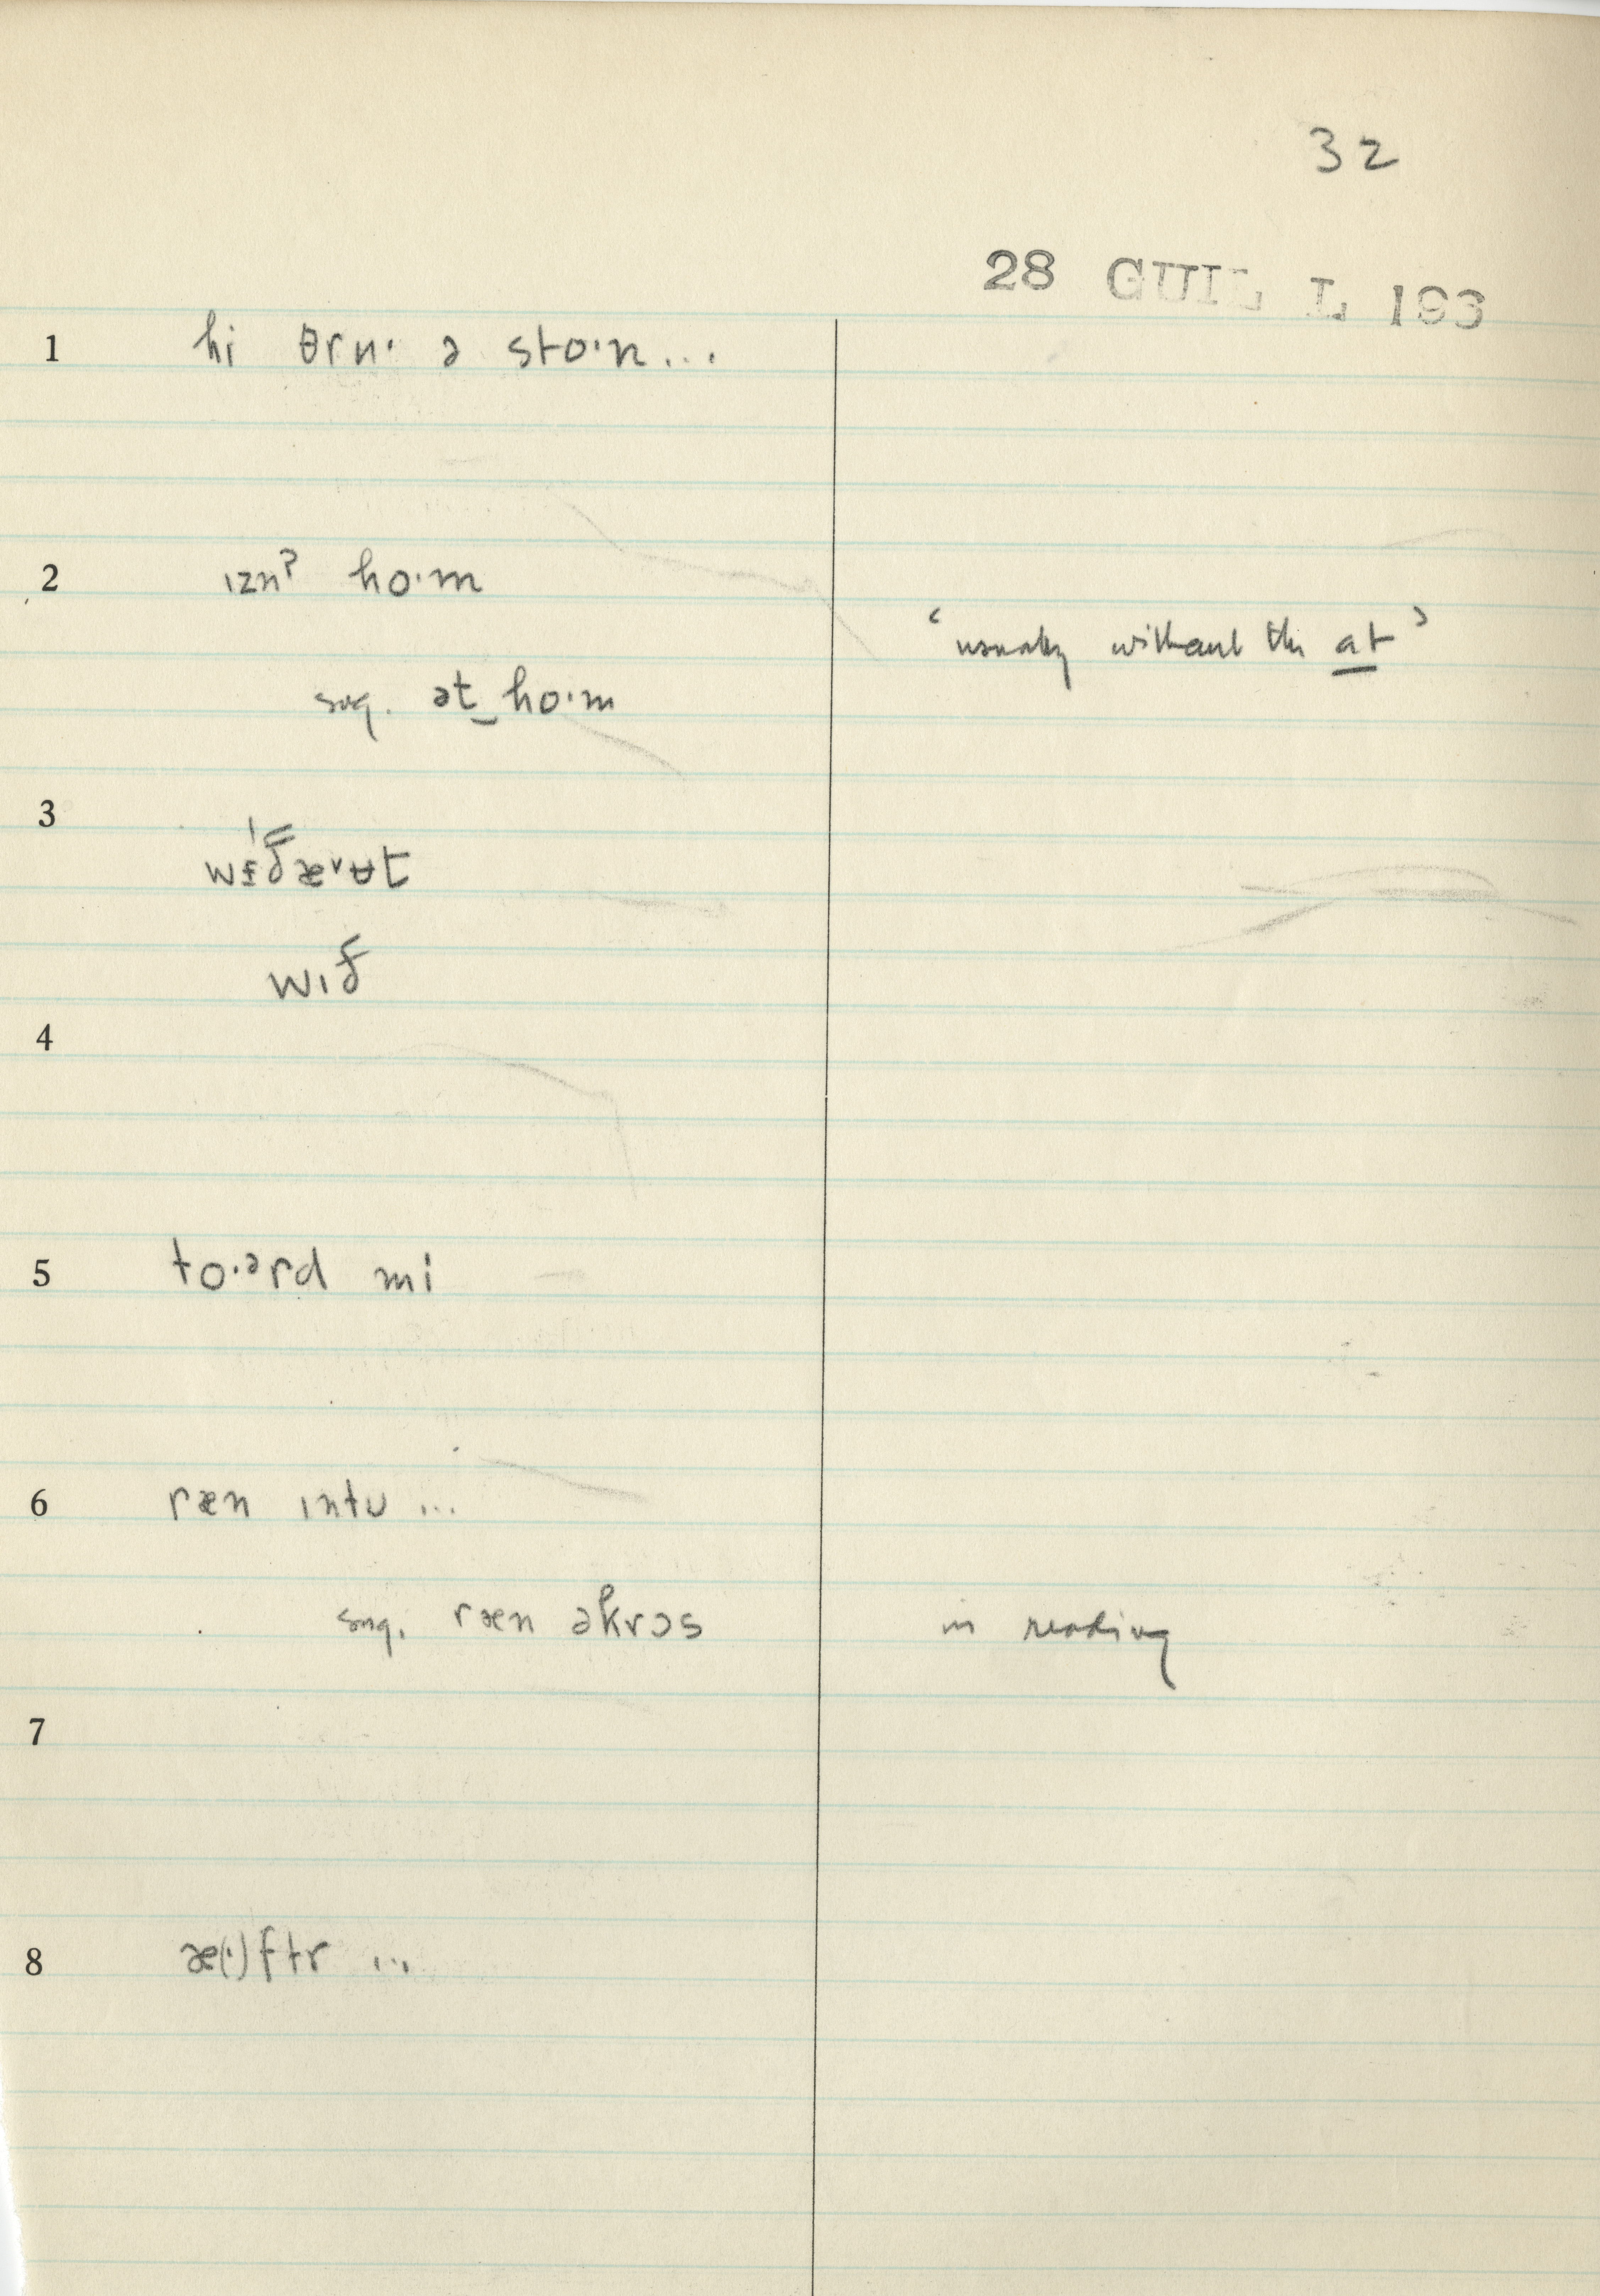 32
28 GUIL L 193
1 hi θrʉ· ə sto·n...
2 ɪznˀ ho·m
"usually without the at"
sug. ət‿ho·m
3 
wɪð
4
5 to·ərd mi
6 ræn ɪntʊ ...
sug. ræn əkrɔs in reading
7
8 æ(·)ftr ...